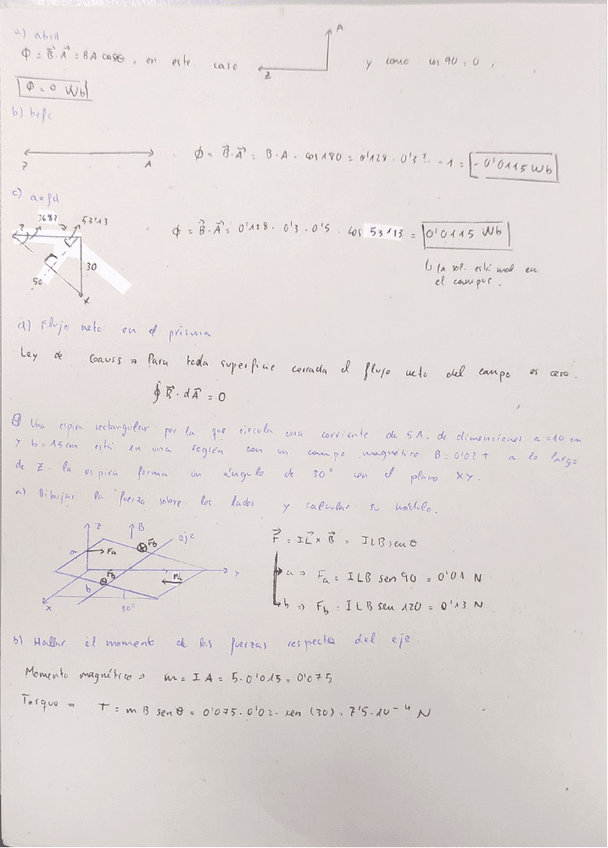 a) abcd
Φ = B⃗ · A⃗ = B A cosθ, en este caso
A
Z
y como cos 90 = 0,
Φ = 0 Wb
b) befc
Z
A
Φ = B⃗ · A⃗ = B · A · cos 180 = 0'128 · 0'3² · -1 = -0'0115 Wb
c) aefd
36'87
53'13
Z
30
50
Φ = B⃗ · A⃗ = 0'128 · 0'3 · 0'5 · cos 53'13 = 0'0115 Wb
la sol. está mal en
el campus.
d) Flujo neto en el prisma
Ley de Gauss ⇒ Para toda superficie cerrada el flujo neto del campo es cero.
∮ B⃗ · dA⃗ = 0
Una espira rectangular por la que circula una corriente de 5 A. de dimensiones a = 10 cm
y b = 15 cm está en una región con un campo magnético B = 0'02 T a lo largo
de Z. la espira forma un ángulo de 30° con el plano XY.
a) Dibujar la fuerza sobre los lados y calcular su módulo.
Z
B
eje
a
Fa
Fb
Fb
Fa
Y
b
X
30°
F⃗ = I L⃗ x B⃗ = I L B sen θ
a ⇒ Fa = I L B sen 90 = 0'01 N
b ⇒ Fb = I L B sen 120 = 0'13 N
b) Hallar el momento de las fuerzas respecto del eje.
Momento magnético ⇒ m = I A = 5 · 0'015 = 0'075
Torque ⇒ T = m B sen θ = 0'075 · 0'02 · sen (30) = 7'5 · 10⁻⁴ N